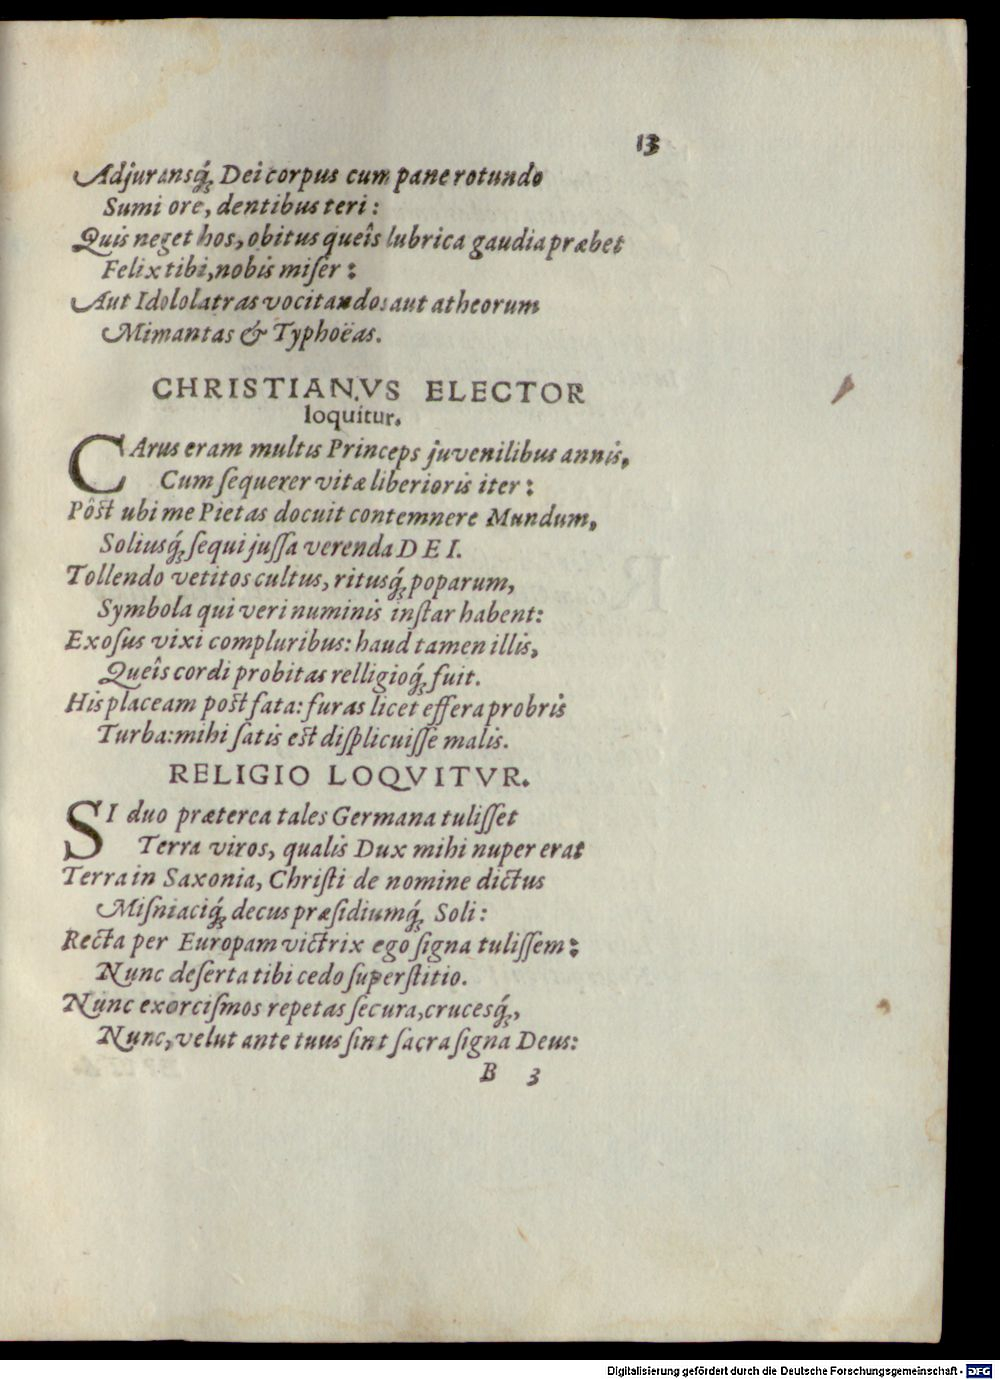 13
Adjuransq́; Dei corpus cum pane rotundo
Sumi ore, dentibus teri:
Quis neget hos, obitus queîs lubrica gaudia præbet
Felix tibi, nobis miſer:
Aut Idololatras vocitandos aut atheorum
Mimantas & Typhoëas.
CHRISTIANVS ELECTOR
loquitur.
CArus eram multis Princeps juvenilibus annis,
Cum ſequerer vitæ liberioris iter:
Pôst ubi me Pietas docuit contemnere Mundum,
Soliusq́; ſequi juſſa verenda DEI.
Tollendo vetitos cultus, ritusq́; poparum,
Symbola qui veri numinis inſtar habent:
Exoſus vixi compluribus: haud tamen illis,
Queîs cordi probitas relligioq́; fuit.
His placeam post fata: furas licet effera probris
Turba: mihi ſatis est diſplicuiſſe malis.
RELIGIO LOQVITVR.
SI duo præterea tales Germana tuliſſet
Terra viros, qualis Dux mihi nuper erat
Terra in Saxonia, Chriſti de nomine dictus
Miſniaciq́; decus præſidiumq́; Soli:
Recta per Europam victrix ego ſigna tuliſſem:
Nunc deſerta tibi cedo ſuperſtitio.
Nunc exorciſmos repetas ſecura, crucesq́;,
Nunc, velut ante tuus ſint ſacra ſigna Deus:
B 3
Digitalisierung gefördert durch die Deutsche Forschungsgemeinschaft - DFG